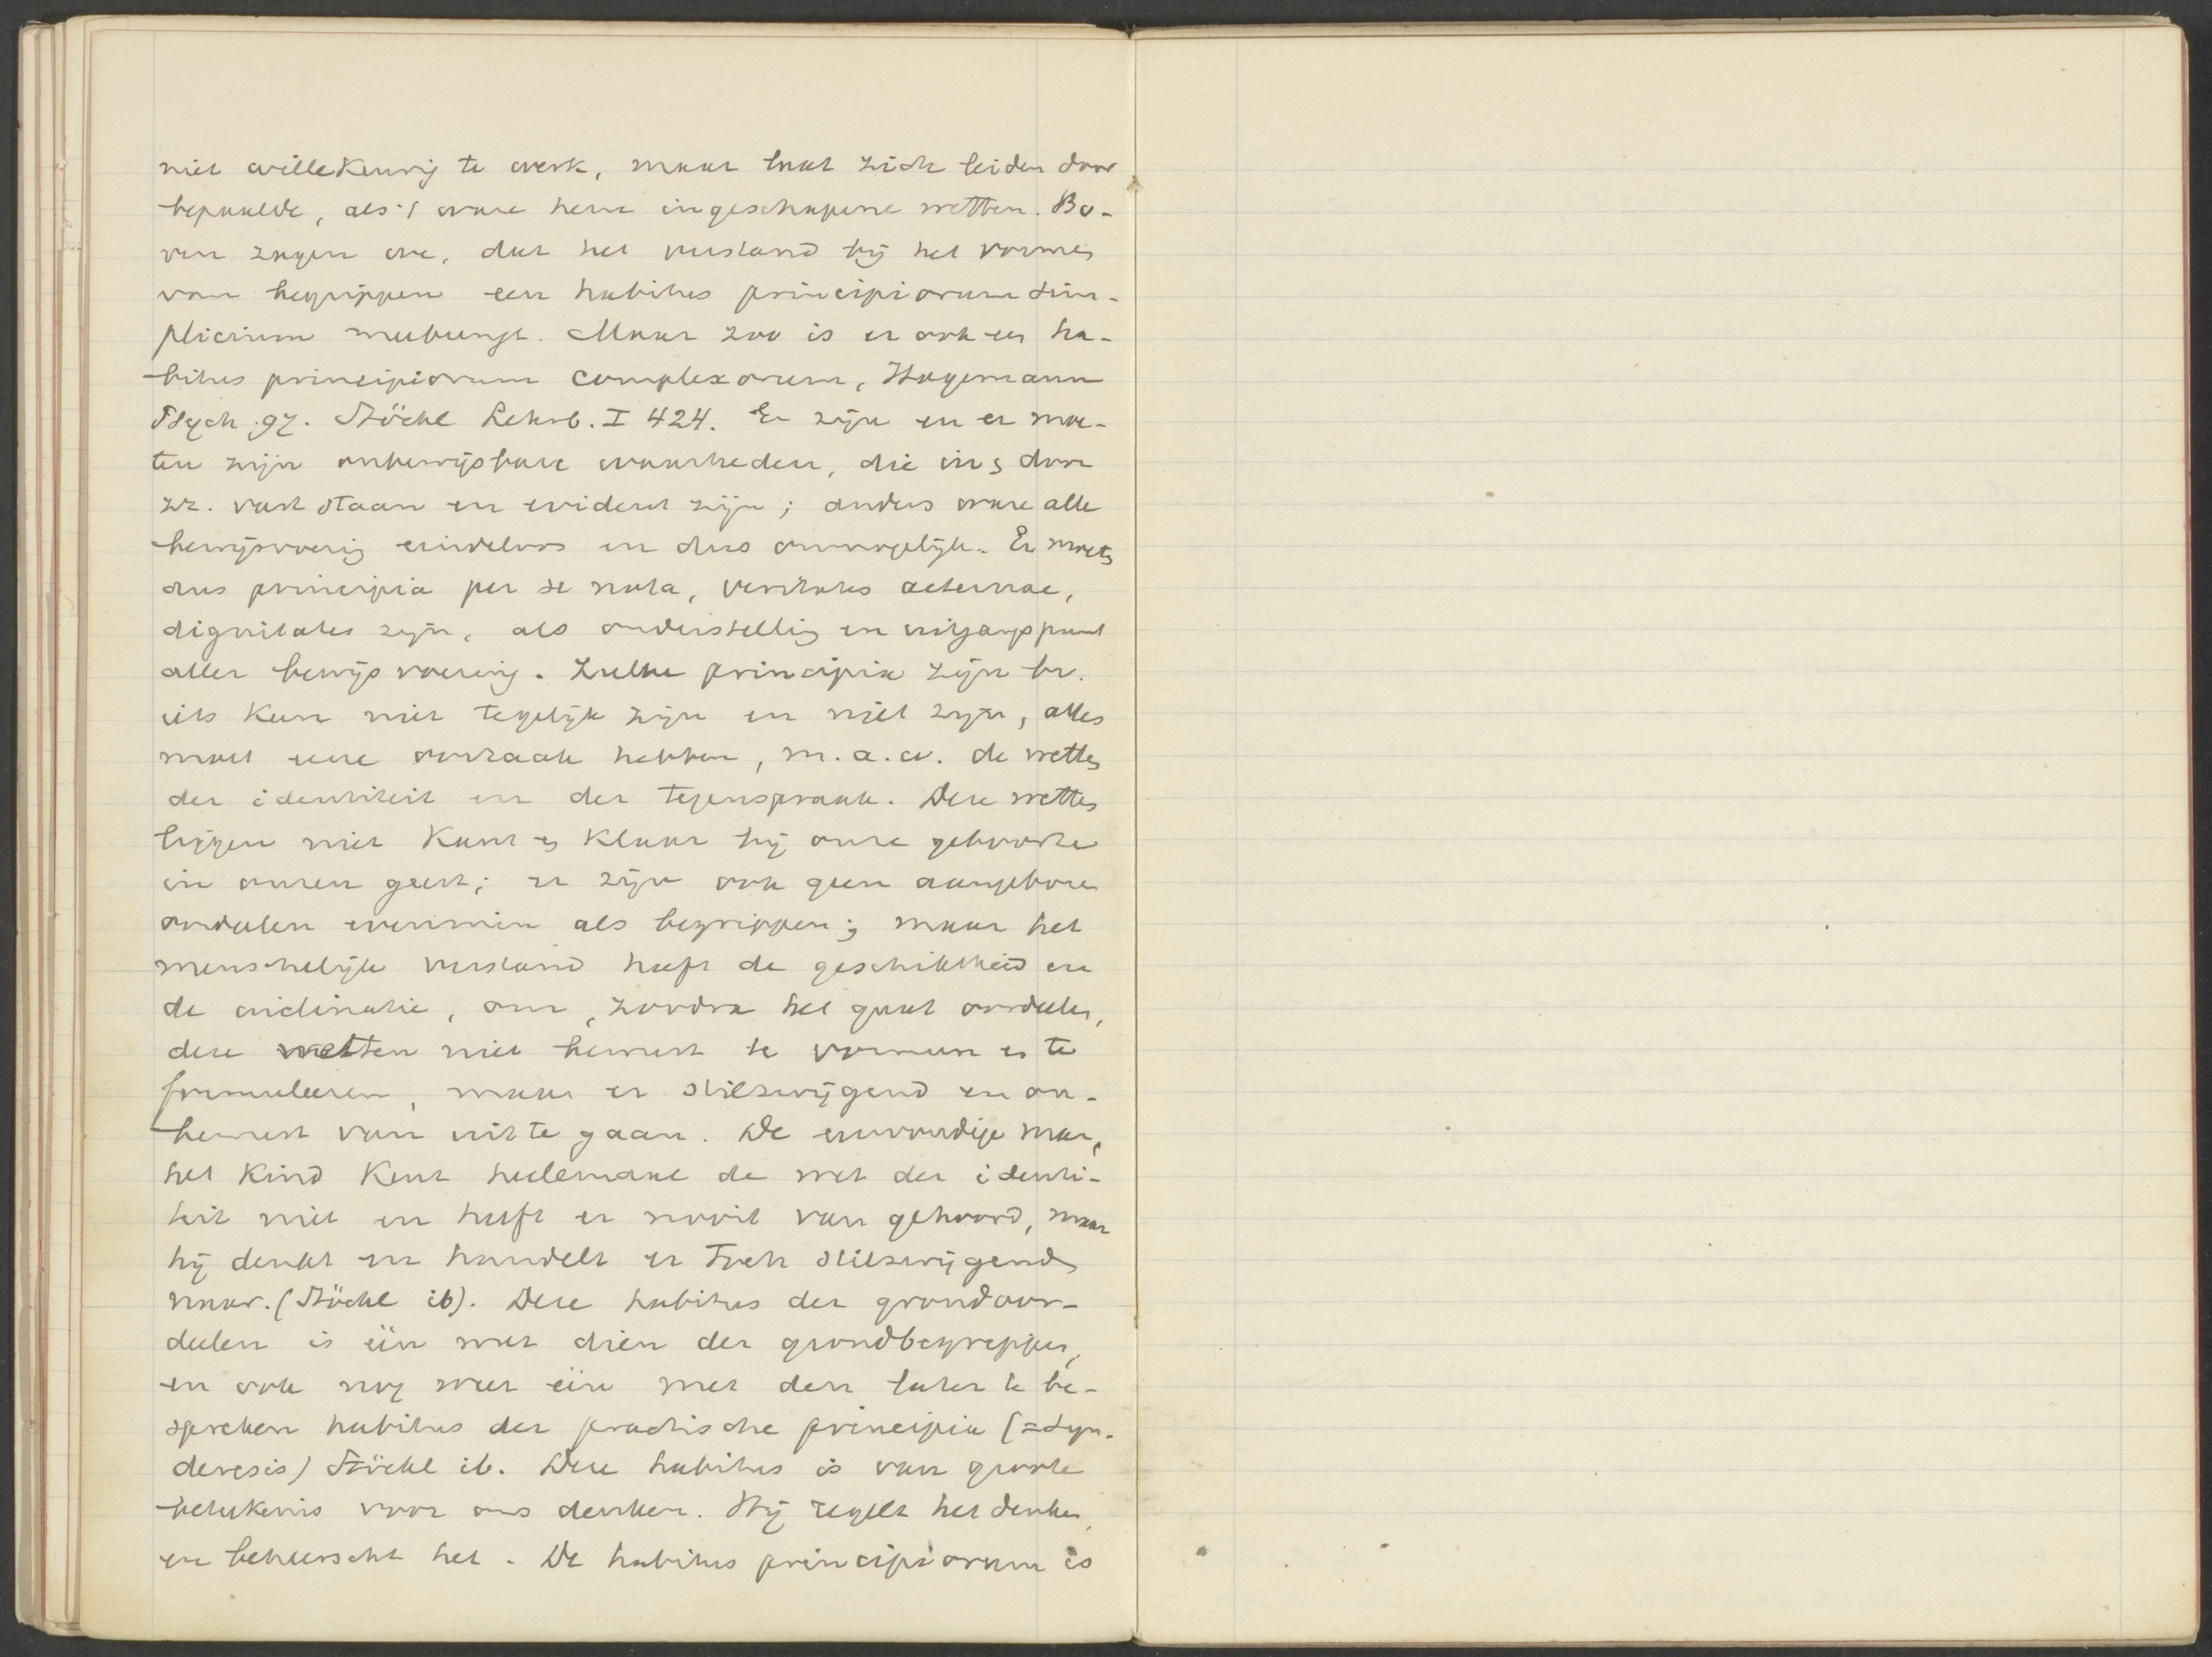 niet willekeurig te werk, maar laat zich leiden door
bepaalde, als 't ware hem ingeschapene wetten. Bo-
ven zagen we, dat het verstand bij het vormen
van begrippen een habitus principiorum sim-
plicium meebrengt. Maar zoo is er ook een ha-
bitus principiorum complexorum, Hagemann
Psych. 97. Stöckl Lehrb. I 424. Er zijn en er moe-
ten zijn onbewijsbare waarheden, die in en door
zz. vast staan en evident zijn; anders ware alle
bewijsvoering eindeloos en dus onmogelijk. Er moeten
dus principia per se nota, veritates aeternae,
dignitates zijn, als onderstelling en uitgangspunt
aller bewijsvoering. Zulke principia zijn bv.
iets kan niet tegelijk zijn en niet zijn, alles
moet eene oorzaak hebben, m.a.w. de wetten
der identiteit en der tegenspraak. Deze wetten
liggen niet kant en klaar bij onze geboorte
in onzen geest; er zijn ook geen aangeboren
oordeelen evenmin als begrippen; maar het
menschelijk verstand heeft de geschiktheid en
de inclinatie, om, zoodra het gaat oordeelen,
deze wetten niet bewust te vormen en te
formuleeren, maar er stilzwijgend en on-
bewust van uit te gaan. De eenvoudige man,
het kind kent heelemaal de wet der identi-
teit niet en heeft er nooit van gehoord, maar
hij denkt en handelt er toch stilzwijgend
naar. (Stöckl ib). Deze habitus der grondoor-
deelen is één met dien der grondbegrippen,
en ook nog weer één met den later te be-
spreken habitus der practische principia (=syn-
deresis) Stöckl ib. Deze habitus is van groote
beteekenis voor ons denken. Hij regelt het denken,
en beheerscht het. De habitus principiorum is